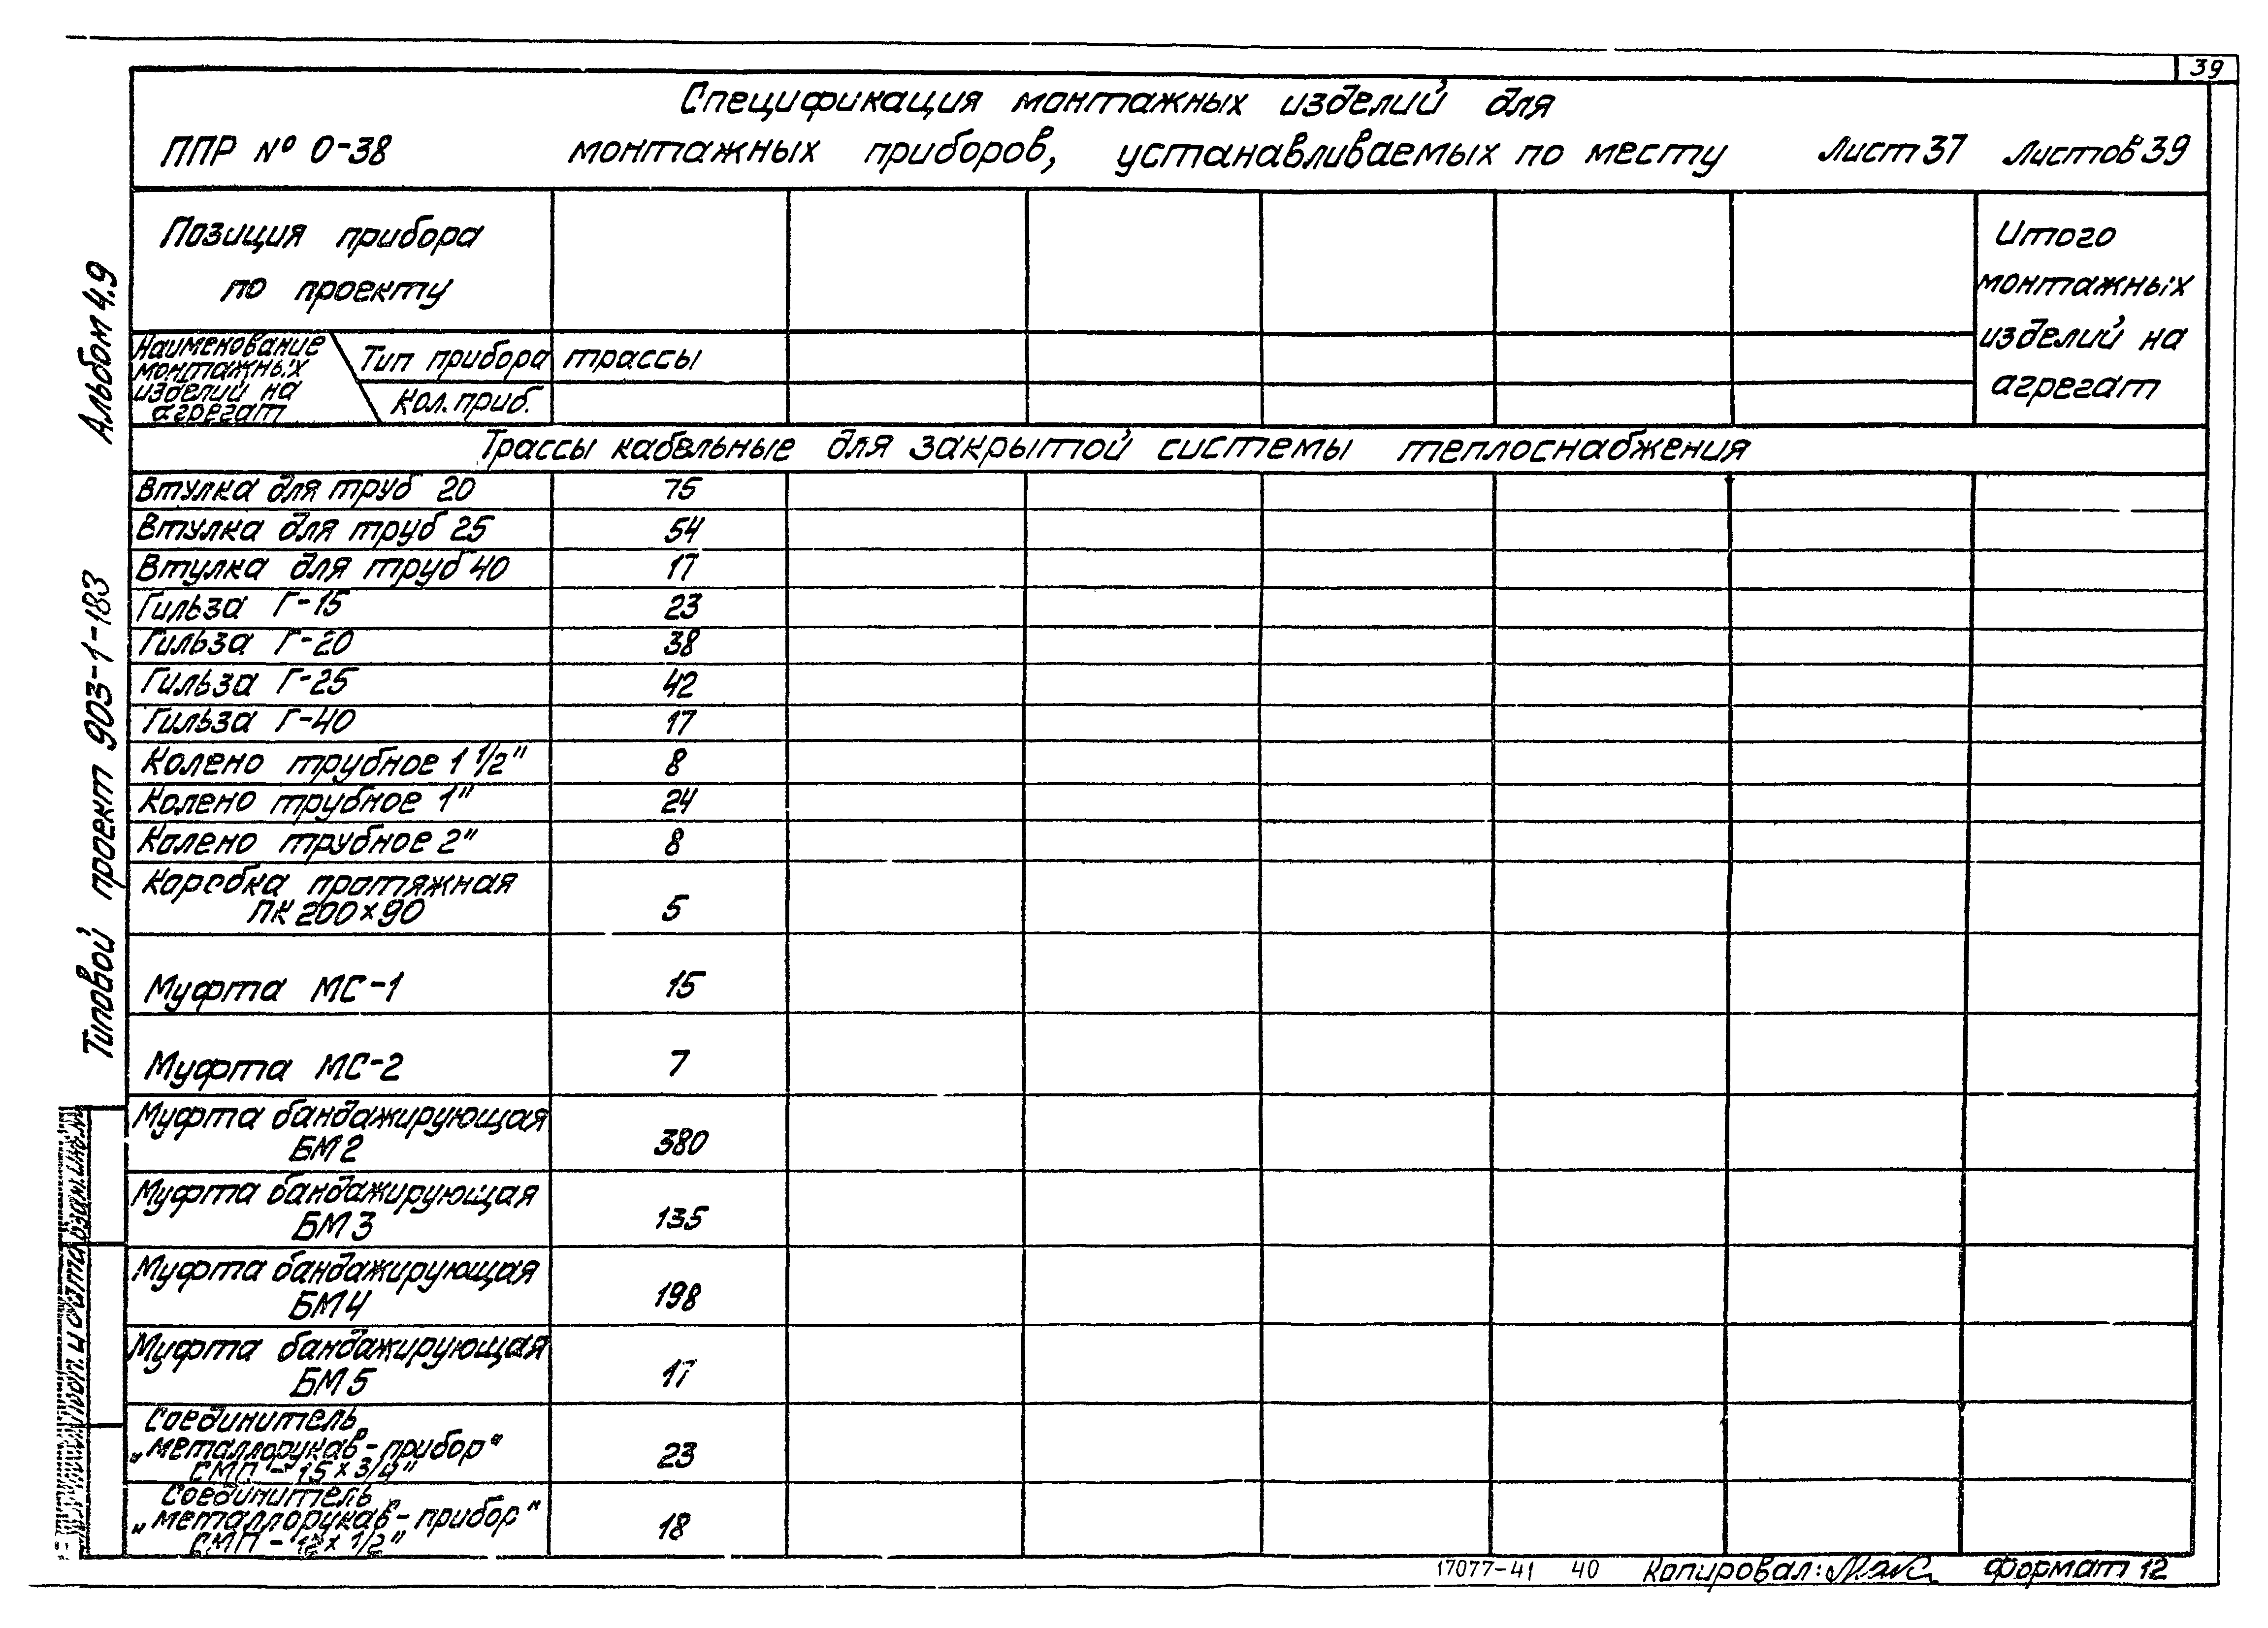 39
Спецификация монтажных изделий для
ППР № 0-38 монтажных приборов, устанавливаемых по месту Лист 37 Листов 39
Позиция прибора
по проекту
Итого
монтажных
изделий на
агрегат
Наименование
монтажных
изделий на
агрегат
Тип прибора трассы
Кол. приб.
Трассы кабельные для закрытой системы теплоснабжения
Втулка для труб 20 75
Втулка для труб 25 54
Втулка для труб 40 17
Гильза Г-15 23
Гильза Г-20 38
Гильза Г-25 42
Гильза Г-40 17
Колено трубное 1 1/2" 8
Колено трубное 1" 24
Колено трубное 2" 8
Коробка протяжная
ПК 200×90 5
Муфта МС-1 15
Муфта МС-2 7
Муфта бандажирующая
БМ2 380
Муфта бандажирующая
БМ3 135
Муфта бандажирующая
БМ4 198
Муфта бандажирующая
БМ5 17
Соединитель
„металлорукав-прибор"
СМП-15×3/4" 23
Соединитель
„металлорукав-прибор"
СМП-12×1/2" 18
Типовой проект 903-1-183 Альбом 4.9
Подп. и дата
Взам. инв. №
17077-41 40 Копировал: Формат 12